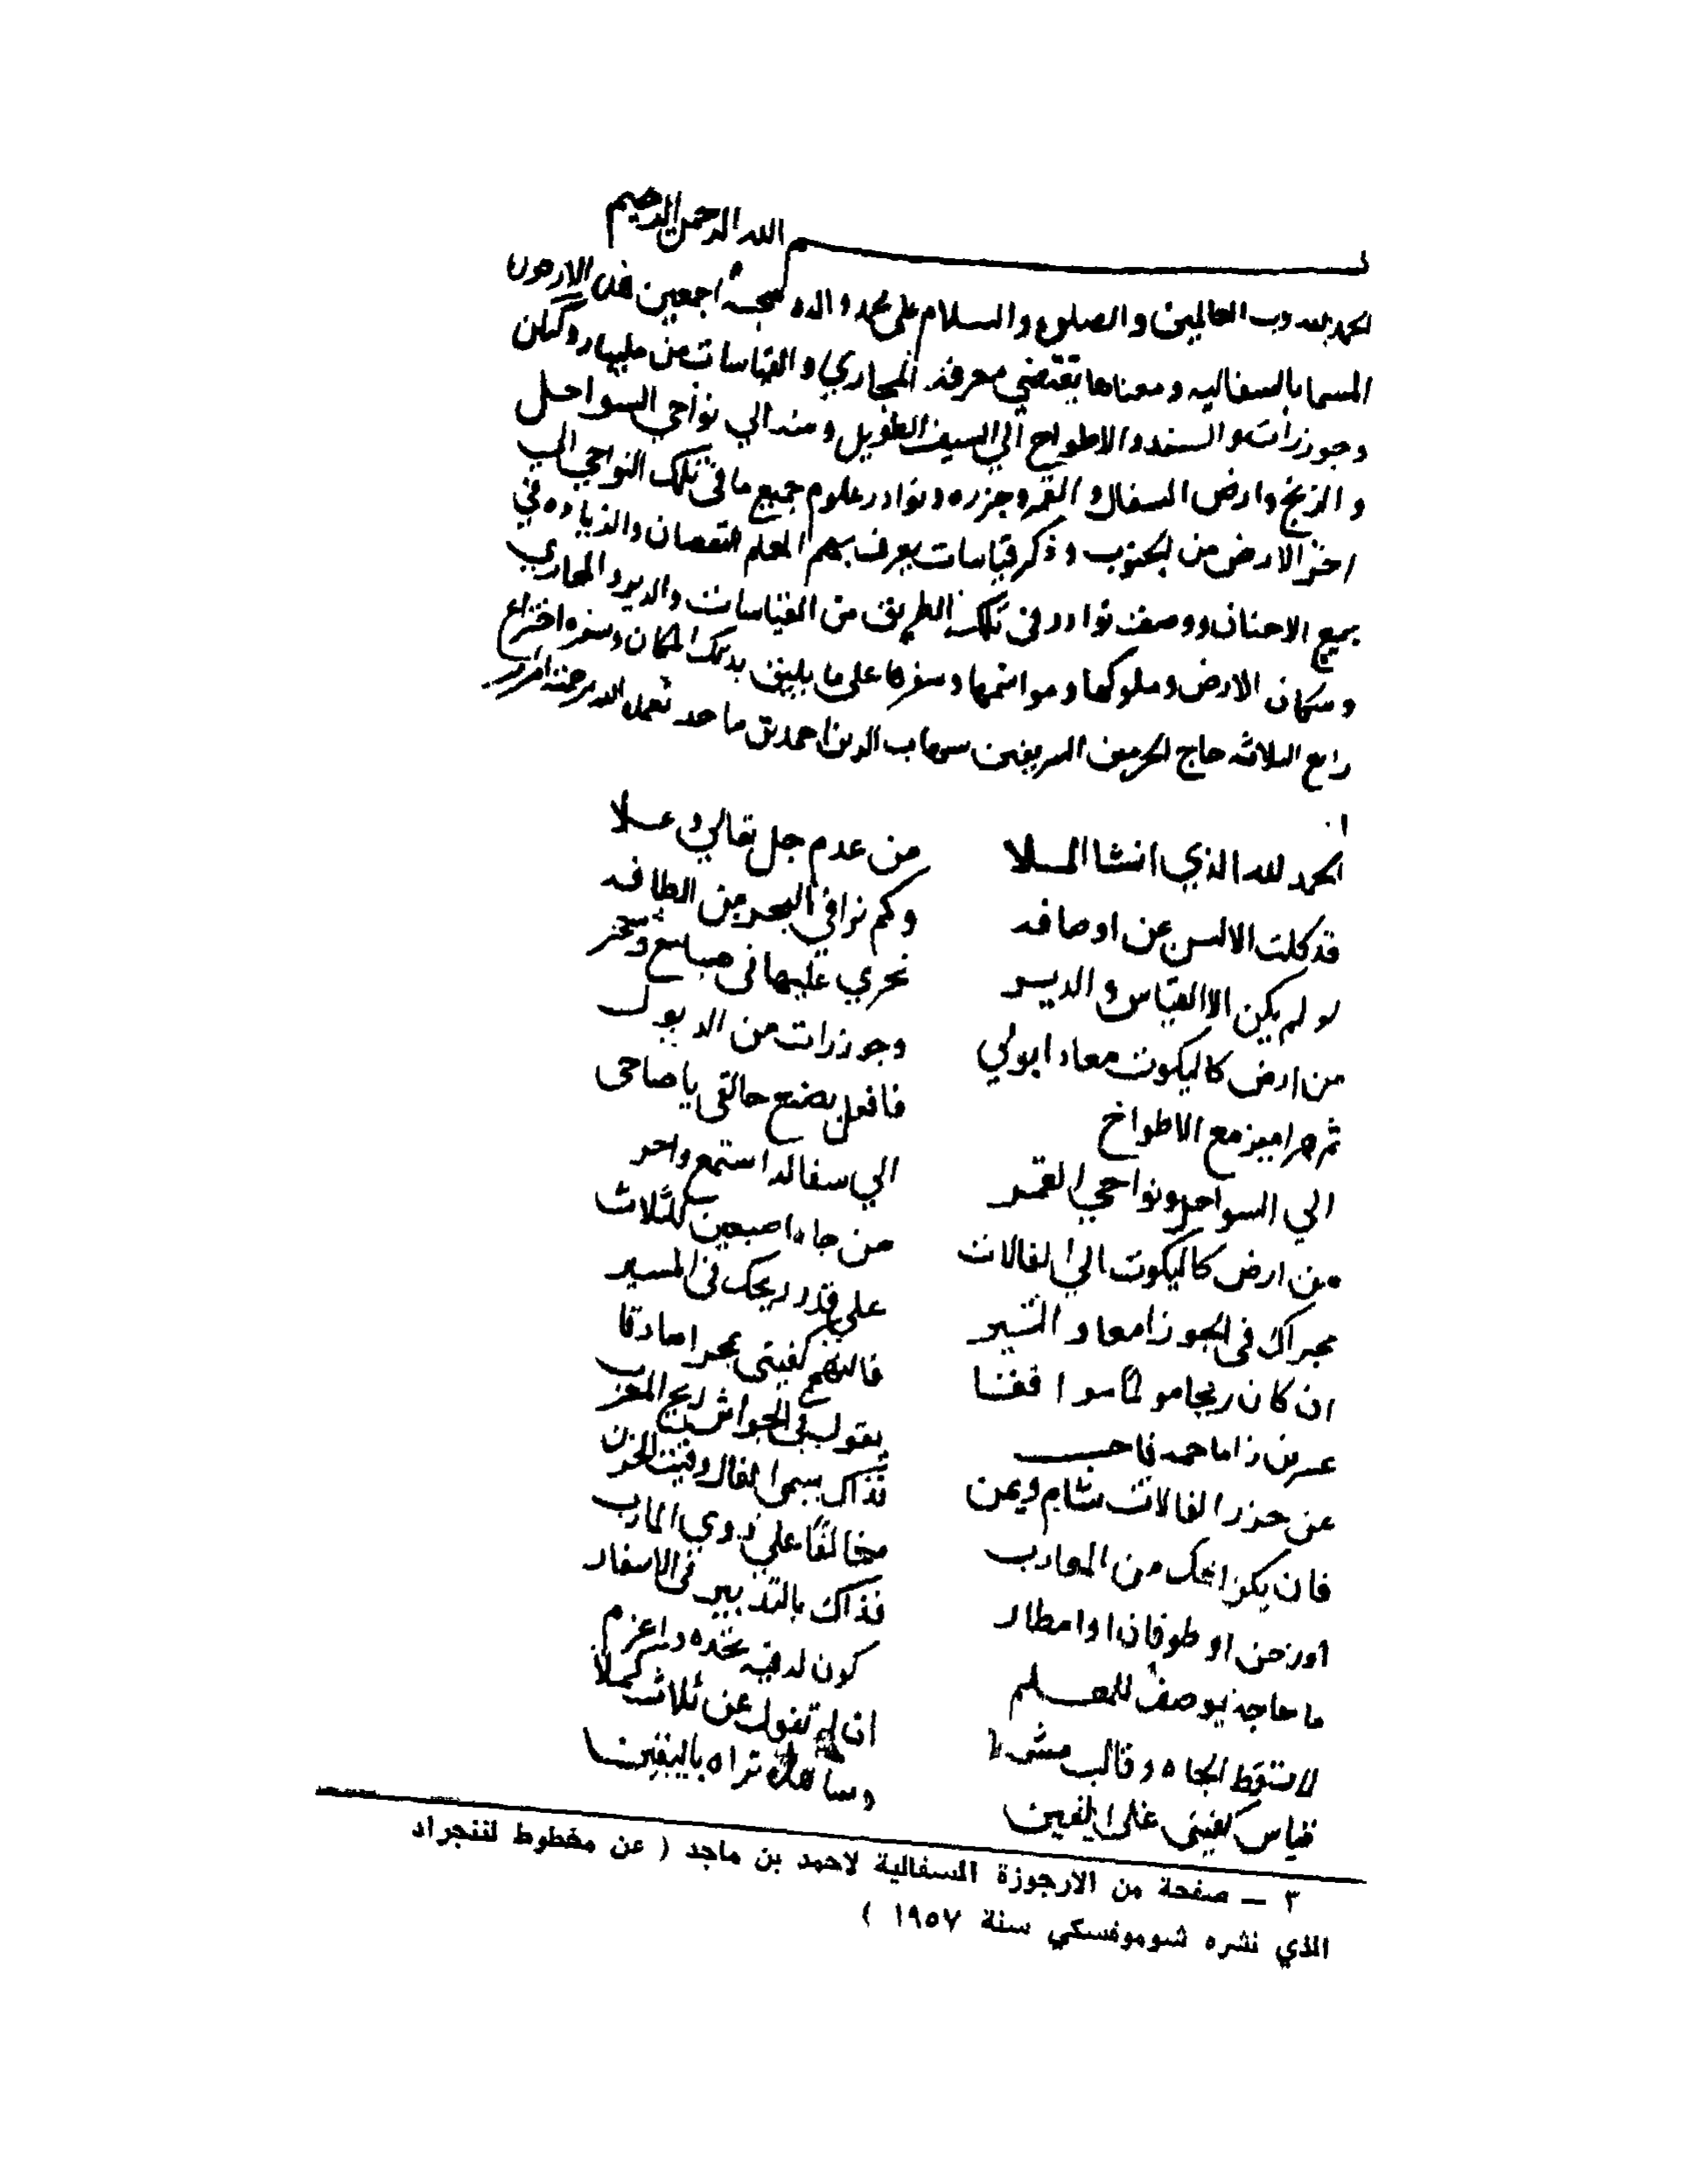 بسم الله الرحمن الرحيم
الحمد لله رب العالمين والصلوه والسلام على محمد واله وصحبه اجمعين هذه الارجوزه
المسما بالسفاليه ومعناها يقتضي معرفة المجاري والقياسات من مليبار وكنكن
وجوزرات والسند والاطواح الي السيف الطويل ومنه الي نواحي السواحل
والزنج وارض السفال والقمر وجزره ونوادر علوم جميع ما في تلك النواحي الي
اخر الارض من الجنوب وذكر قياسات يعرف بهم المعلم النقصان والزياده في
جميع الاخنان ووصف نوادر في تلك الطريق من القياسات والدير والمجاري
وسكان الارض وملوكها ومواسمها وسفرها على ما يليق بذلك المكان وسفره اختراع
رابع الثلاثه حاج الحرمين الشريفين شهاب الدين احمد بن ماجد تغمده الله برحمته امين
الحمد لله الذي انشا الملا من عدم جل تعالي وعلا
قد كلت الالسن عن اوصافه وكم نرا في البحر من الطافه
لو لم يكن الا القياس والدير نجري عليها في صباح وسحر
من ارض كاليكوت معا دابولي وجوزرات من الديول
ثم هراميز مع الاطواخ فافعل بصنع خالقي يا صاحى
الي السواحل ونواحي القمر الي سفاله استمع وادر
من ارض كاليكوت الي الفالات من جاه اصبعين للثلاث
مجراك في الجوزا معا والتير علي قدر ريحك في المسير
ان كان ريحا مولما موافقا فالنهج كفيتي بحرا صادقا
عبرين زاما حمه فاحسب يقول في الجواش ريح المغرب
عن حذر الفالات شام ويمن فذاك يسمى الفال وقيت الحزن
فان يكن ريحك من المغارب مخالفا علي ذوي المارب
اوزحن او طوفان او امطار فذاك بالتدبير في الاسفار
ما حاجة يوصف للمعلم كون لديه نجده واعزم
لا تسقط الجاه وقالب مشرقا ان لم تفول عن ثلاث كملا
قياس كفيني على اليقين وساحله تراه باليقين
٣ – صفحة من الارجوزة السفالية لاحمد بن ماجد ( عن مخطوط لننجراد
الذي نشره شوموفسكي سنة ١٩٥٧ )